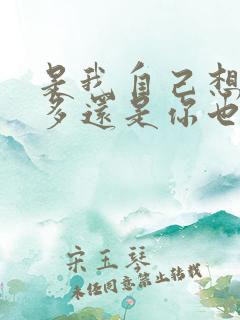 是我自己想
多還是你也
宋玉琴
未经同意禁止转载